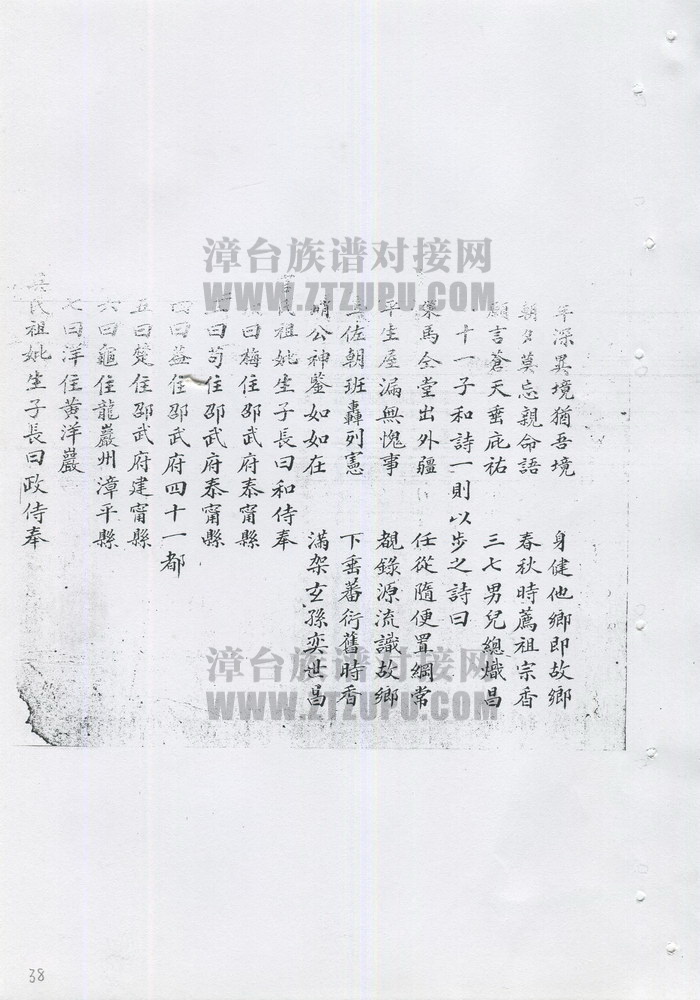 深異境猶吾境 身健他鄉即故鄉
朝夕莫忘親命語 春秋時薦祖宗香
願言蒼天垂庇祐 三七男兒總熾昌
十一子和詩一則以步之詩曰
馬仝堂出外疆 任從隨便置綱常
平生屋漏無愧事 覩錄源流識故鄉
佐朝班轟列憲 下垂蕃衍舊時香
峭公神鑒如如在 滿架玄孫奕世昌
氏祖妣生子長曰和侍奉
曰梅住邵武府泰甯縣
曰苟住邵武府泰甯縣
四曰益住邵武府四十一都
五曰楚住邵武府建甯縣
六曰龜住龍巖州漳平縣
七曰洋住黃洋巖
吳氏祖妣生子長曰政侍奉
漳台族谱对接网
WWW.ZTZUPU.COM
漳台族谱对接网
WWW.ZTZUPU.COM
38